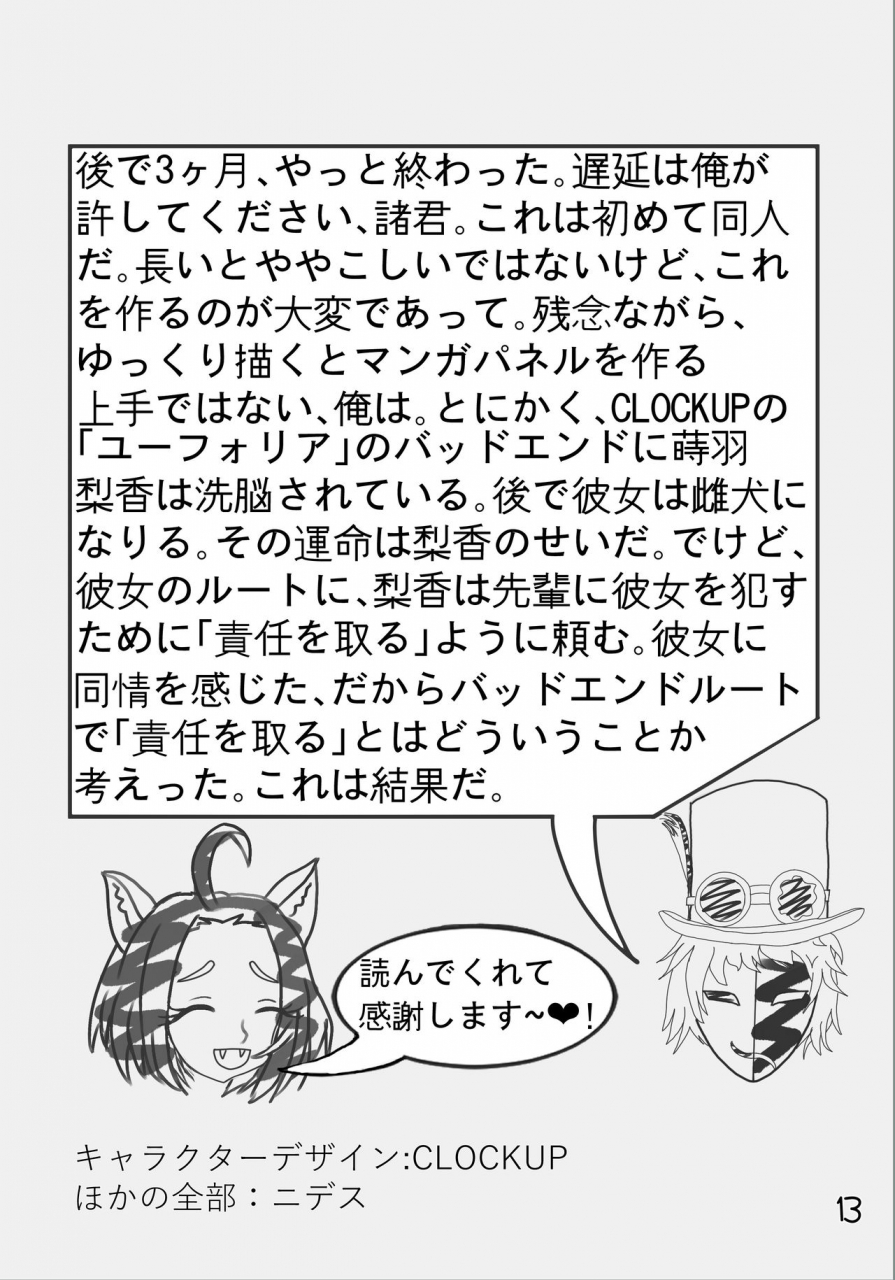 後で3ヶ月、やっと終わった。遅延は俺が
許してください、諸君。これは初めて同人
だ。長いとややこしいではないけど、これ
を作るのが大変であって。残念ながら、
ゆっくり描くとマンガパネルを作る
上手ではない、俺は。とにかく、CLOCKUPの
「ユーフォリア」のバッドエンドに蒔羽
梨香は洗脳されている。後で彼女は雌犬に
なりる。その運命は梨香のせいだ。でけど、
彼女のルートに、梨香は先輩に彼女を犯す
ために「責任を取る」ように頼む。彼女に
同情を感じた、だからバッドエンドルート
で「責任を取る」とはどういうことか
考えった。これは結果だ。
読んでくれて
感謝します~❤!
キャラクターデザイン:CLOCKUP
ほかの全部：ニデス
13